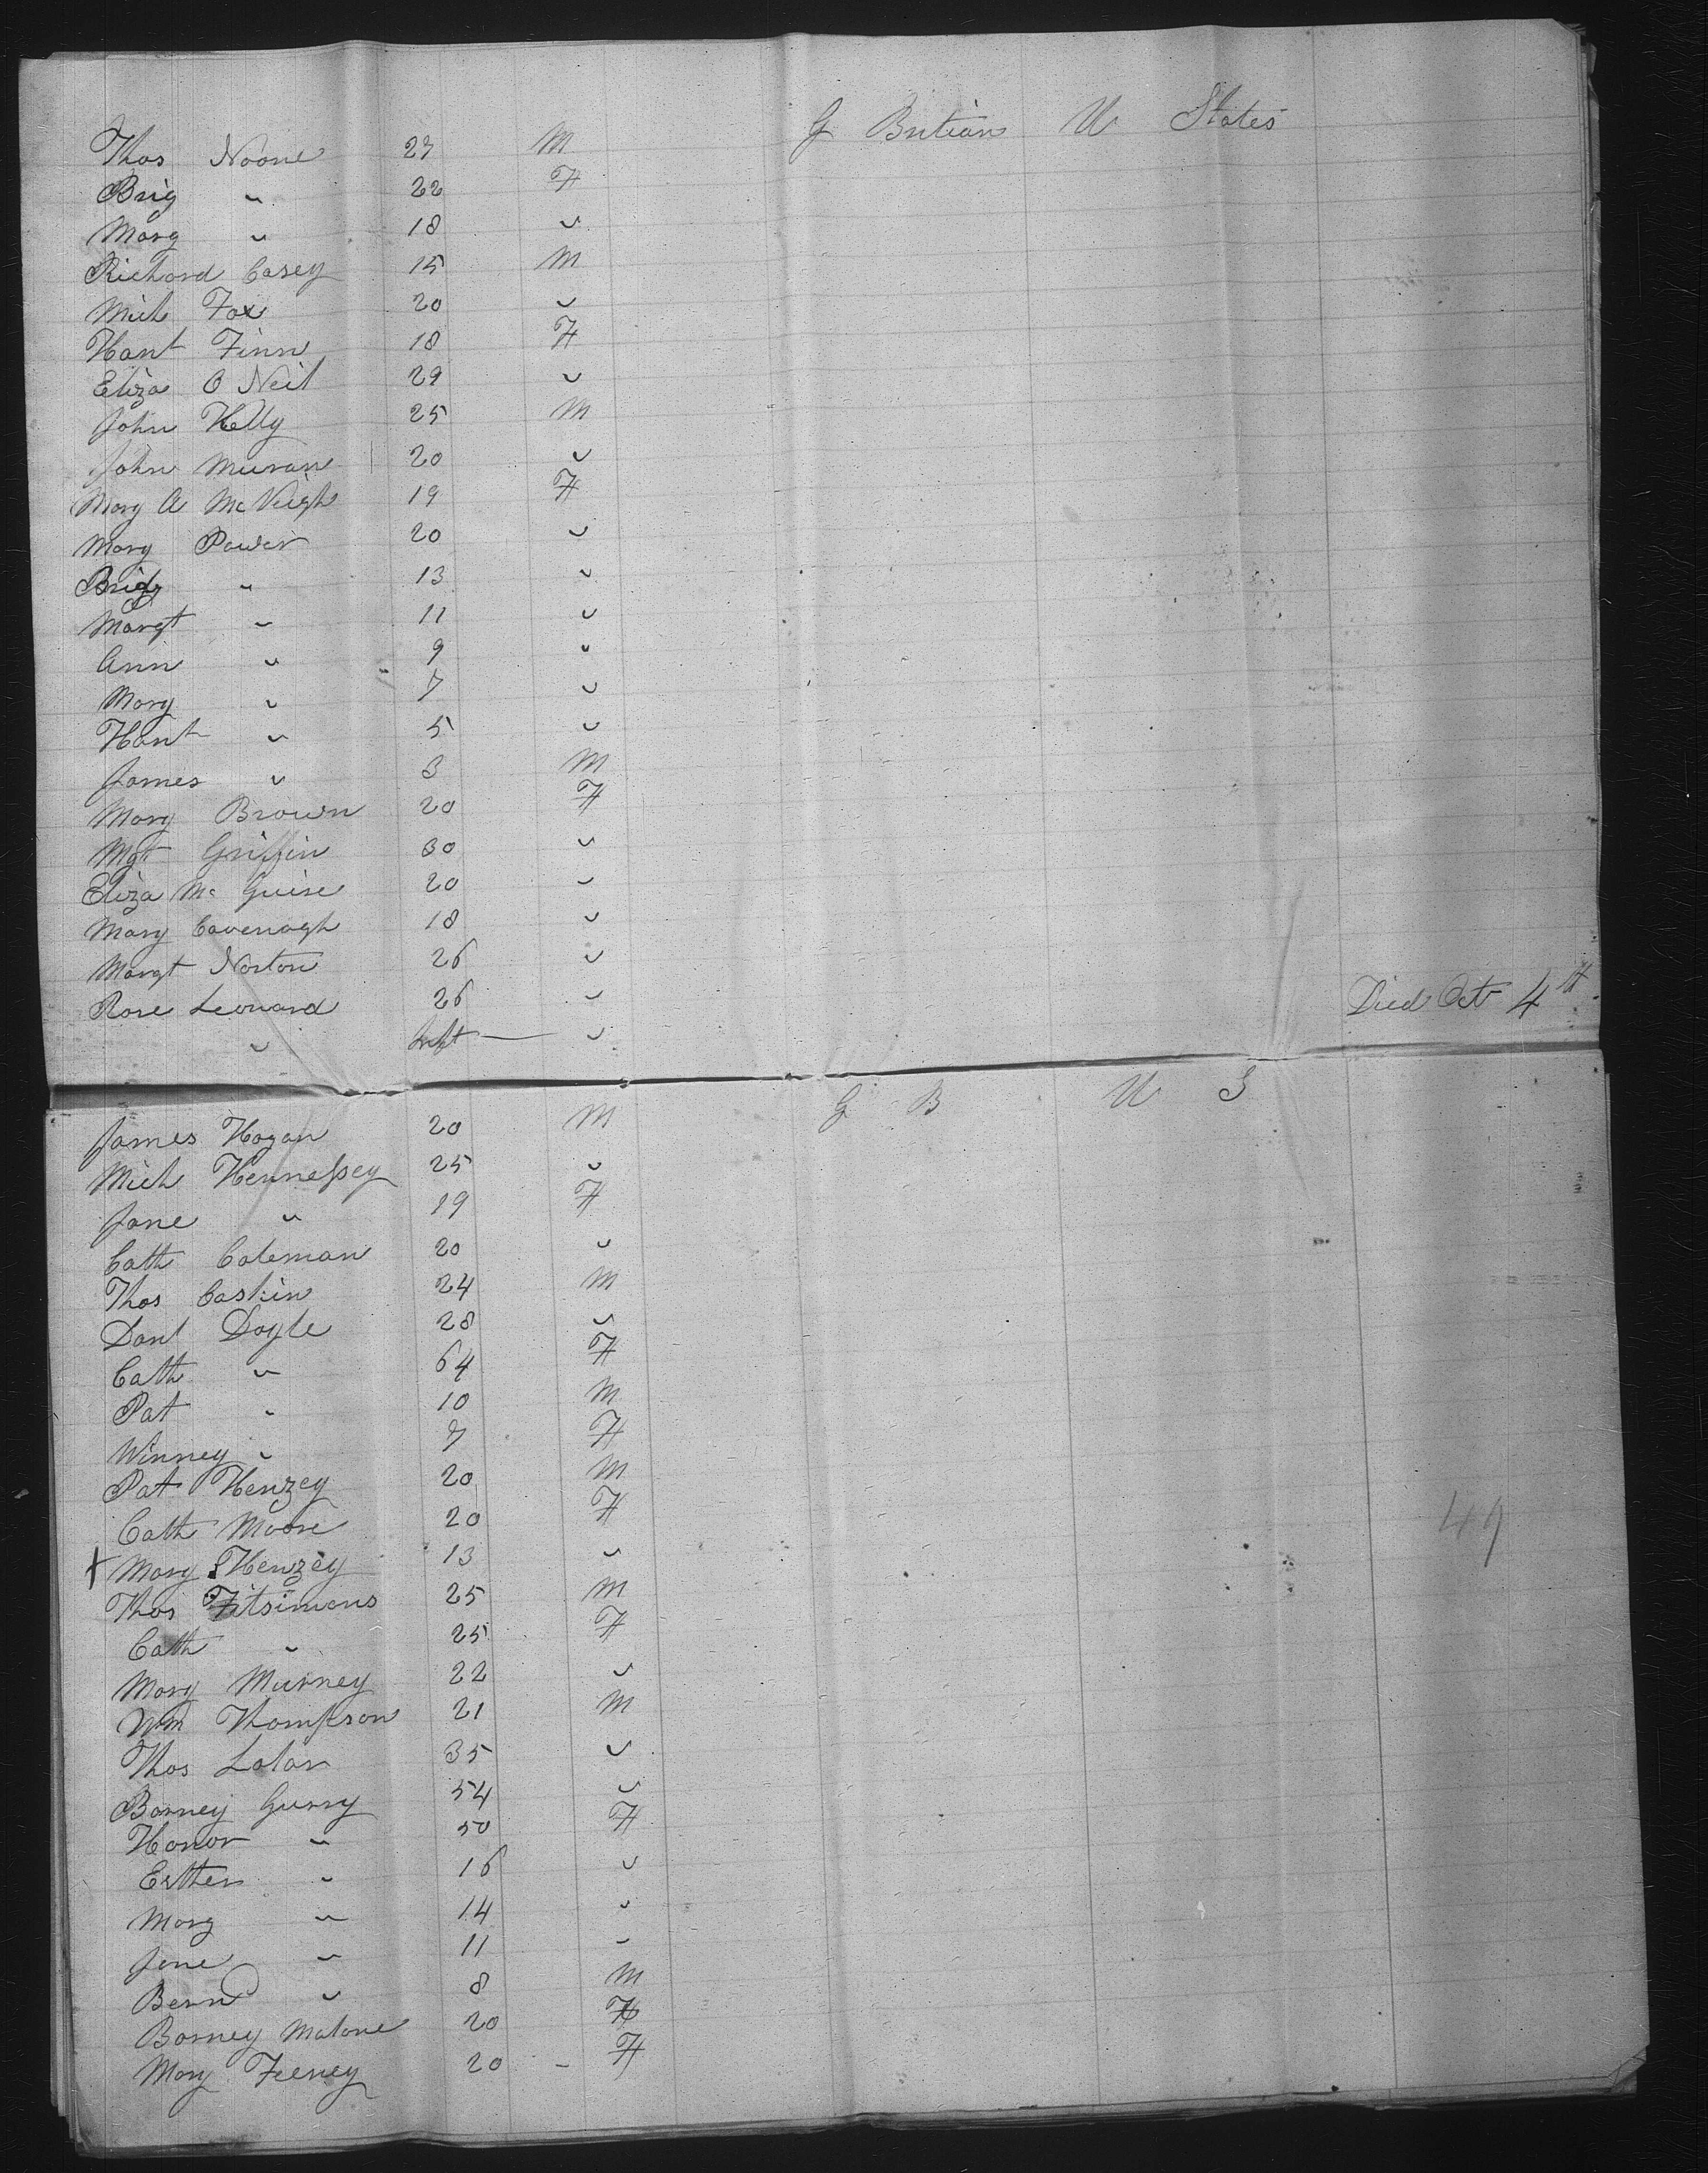 Thos Noone 27 M G Britian U States
Brig " 22 F
Marg " 18 "
Richard Casey 15 M
Mich Fox 20 "
Hant Finn 18 F
Eliza O Neil 29 "
John Kelly 25 M
John Muran 20 "
Mary A McVeigh 19 F
Mary Power 20 "
Bridg " 13 "
Margt " 11 "
Ann " 9 "
Mary " 7 "
Hant " 5 "
James " 3 M
Mary Brown 20 F
Mgt Griffin 30 "
Eliza Mc Guire 20 "
Mary Cavenagh 18 "
Margt Norton 26 "
Rose Leonard 26 " Died Oct 4th
" Inft — "
James Hogan 20 M G B U S
Mich Hennessey 25 "
Jane " 19 F
Cath Coleman 20 "
Thos Caskin 24 M
Danl Doyle 28 "
Cath " 64 F
Pat " 10 M
Winney " 7 F
Pat Henzey 20 M
Cath Moore 20 F 49
+ Mary Henzey 13 "
Thos Fitsimons 25 M
Cath " 25 F
Mary Murney 22 "
Wm Thompson 21 M
Thos Lalor 35 "
Barney Gurry 54 "
Honor " 50 F
Esther " 16 "
Mary " 14 "
Jane " 11 "
Bernd " 8 M
Barney Malone 20
Mary Feeney 20 - F